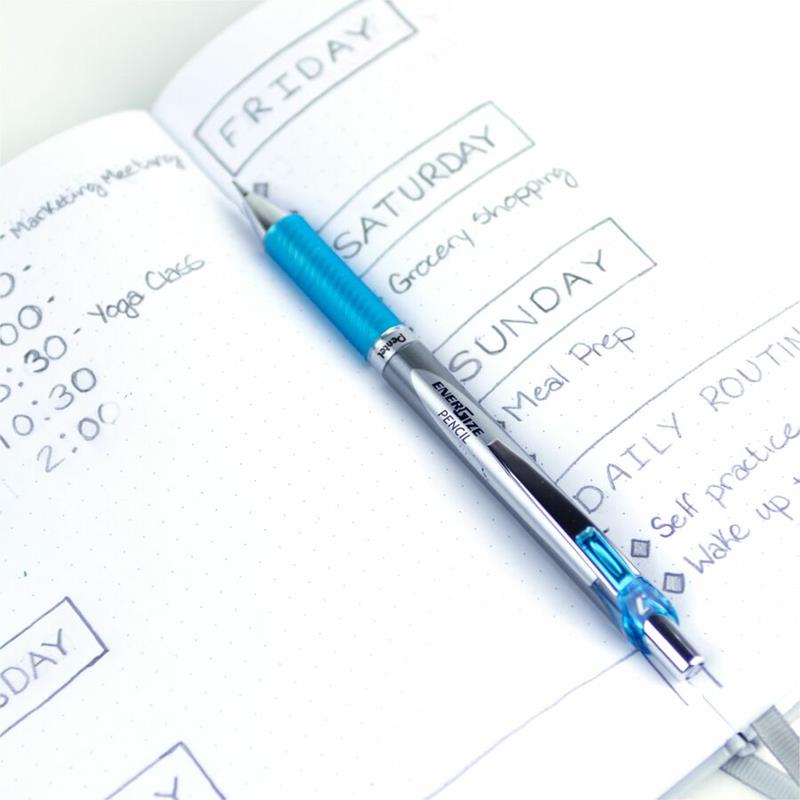 - Marketing Meeting
00-
:30 - Yoga Class
10:30
2:00
SDAY
Y
FRIDAY
SATURDAY
Grocery shopping
SUNDAY
Meal Prep
DAILY ROUTIN
Self practice
Wake up
Pentel
ENERGIZE
PENCIL